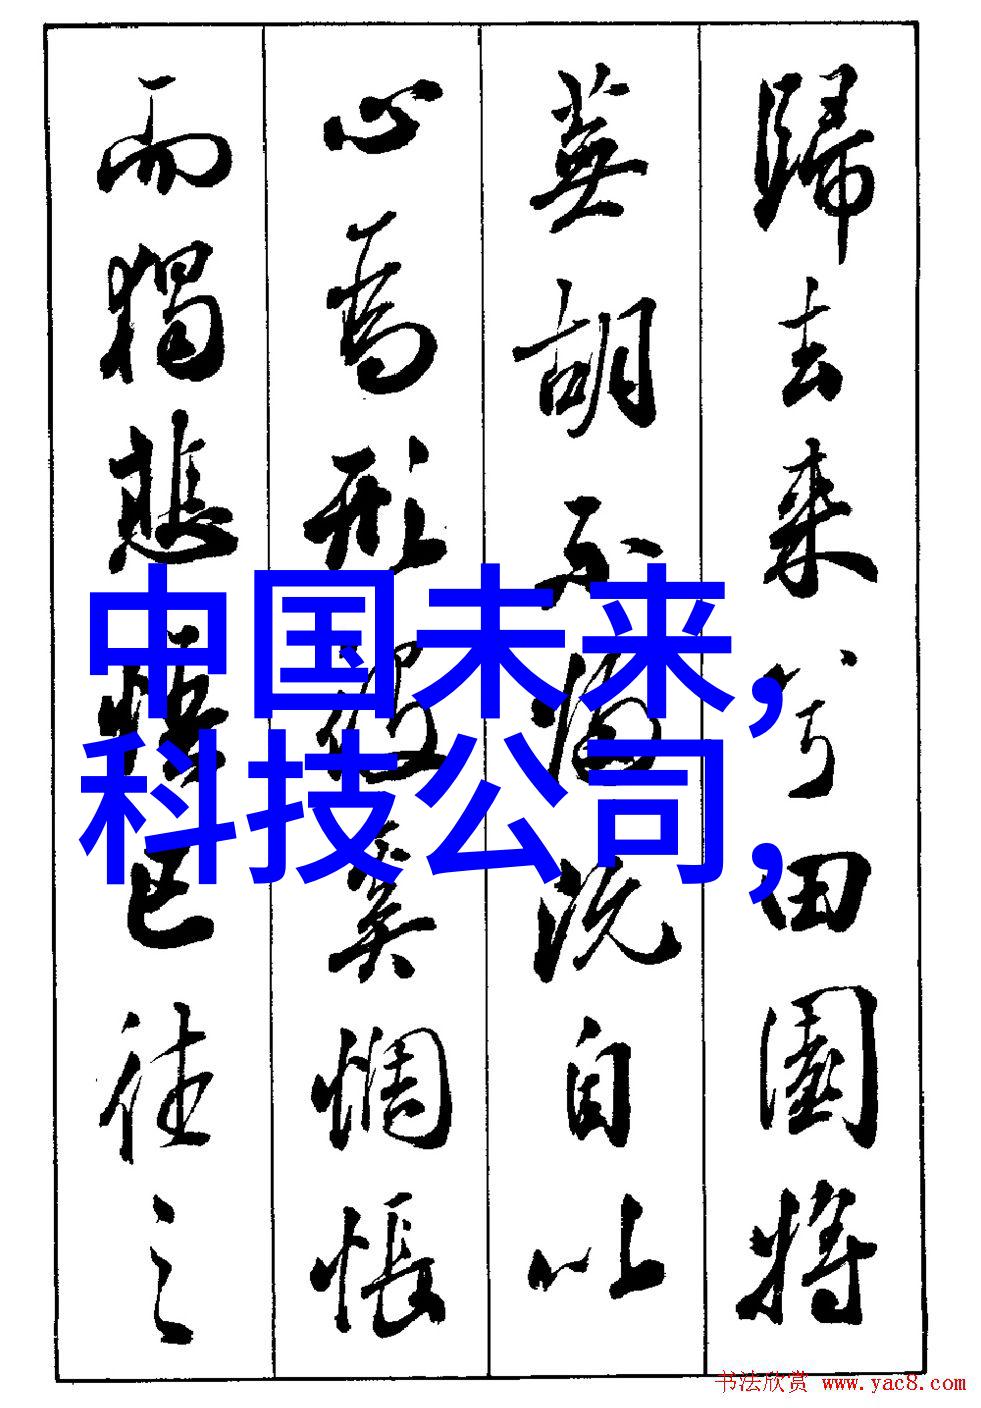 歸去来兮田園將
蕪胡不既自以
心為形役奚惆悵
而獨悲悟已往之
中国未来,
科技公司,
书法欣赏 www.yac8.com